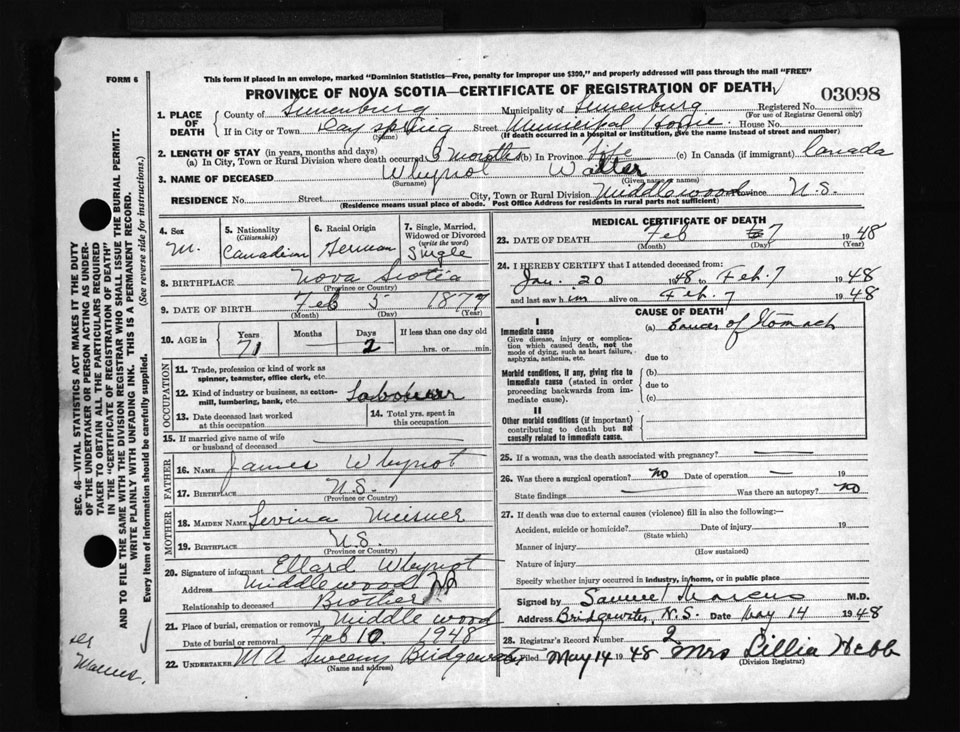 FORM 6
This form if placed in an envelope, marked "Dominion Statistics—Free, penalty for improper use $300," and properly addressed will pass through the mail "FREE"
PROVINCE OF NOVA SCOTIA—CERTIFICATE OF REGISTRATION OF DEATH
03098
1. PLACE OF DEATH
County of Lunenburg Municipality of Lunenburg Registered No.
(For use of Registrar General only)
If in City or Town Dayspring Street Municipal Home House No.
(Name) (If death occurred in a hospital or institution, give the name instead of street and number)
2. LENGTH OF STAY (in years, months and days)
(a) In City, Town or Rural Division where death occurred months (b) In Province life (c) In Canada (if immigrant) Canada
3. NAME OF DECEASED Whynot Walter
(Surname) (Given name or names)
RESIDENCE No. Street City, Town or Rural Division Middlewood Province N.S.
(Residence means usual place of abode. Post Office Address for residents in rural parts not sufficient)
4. Sex M.
5. Nationality (Citizenship) Canadian
6. Racial Origin German
7. Single, Married, Widowed or Divorced (write the word) Single
8. BIRTHPLACE Nova Scotia
(Province or Country)
9. DATE OF BIRTH Feb 5 1877
(Month) (Day) (Year)
10. AGE in Years Months Days If less than one day old
71 2 hrs. or min.
OCCUPATION
11. Trade, profession or kind of work as spinner, teamster, office clerk, etc.
12. Kind of industry or business, as cotton-mill, lumbering, bank, etc. Labourer
13. Date deceased last worked at this occupation
14. Total yrs. spent in this occupation
15. If married give name of wife or husband of deceased
FATHER
16. NAME James Whynot
17. BIRTHPLACE N.S.
(Province or Country)
MOTHER
18. MAIDEN NAME Levina Meisner
19. BIRTHPLACE N.S.
(Province or Country)
20. Signature of informant Ellard Whynot
Address Middlewood NS
Relationship to deceased Brother
21. Place of burial, cremation or removal Middlewood
Date of burial or removal Feb 10 1948
22. UNDERTAKER M A Sweeny Bridgewater
(Name and address)
MEDICAL CERTIFICATE OF DEATH
23. DATE OF DEATH Feb 7 1948
(Month) (Day) (Year)
24. I HEREBY CERTIFY that I attended deceased from
Jan. 20 1948 to Feb. 7 1948
and last saw him alive on Feb. 7 1948
CAUSE OF DEATH
I
Immediate cause
Give disease, injury or complication which caused death, not the mode of dying, such as heart failure, asphyxia, asthenia, etc.
(a) Cancer of Stomach
due to
Morbid conditions, if any, giving rise to immediate cause (stated in order proceeding backwards from immediate cause).
(b)
due to
(c)
II
Other morbid conditions (if important) contributing to death but not causally related to immediate cause.
25. If a woman, was the death associated with pregnancy?
26. Was there a surgical operation? no Date of operation 19
State findings Was there an autopsy? no
27. If death was due to external causes (violence) fill in also the following:—
Accident, suicide or homicide? Date of injury 19
(State which)
Manner of injury
(How sustained)
Nature of injury
Specify whether injury occurred in industry, in home, or in public place
Signed by Samuel Marcus M.D.
Address Bridgewater, N.S. Date May 14 1948
28. Registrar's Record Number 9
Filed May 14 1948 Mrs Lillia Hebb
(Division Registrar)
SEC. 46—VITAL STATISTICS ACT MAKES IT THE DUTY
OF THE UNDERTAKER OR PERSON ACTING AS UNDER-
TAKER TO OBTAIN ALL THE PARTICULARS REQUIRED
IN THE "CERTIFICATE OF REGISTRATION OF DEATH"
AND TO FILE THE SAME WITH THE DIVISION REGISTRAR WHO SHALL ISSUE THE BURIAL PERMIT.
WRITE PLAINLY WITH UNFADING INK. THIS IS A PERMANENT RECORD.
Every item of information should be carefully supplied. (See reverse side for instructions.)
Marcus.